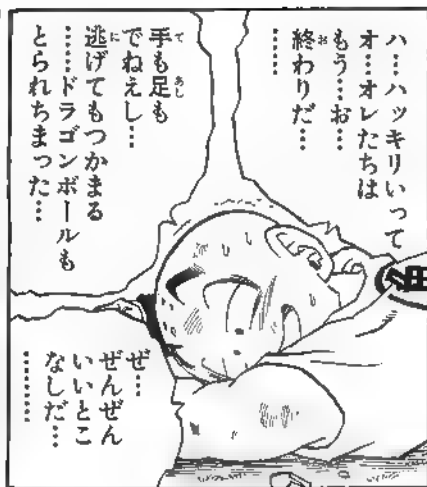 ハ…ハッキリいって
オ…オレたちは
もう…お…
終わりだ…
……
手も足も
でねえし…
逃げてもつかまる
……ドラゴンボールも
とられちまった…
ぜ…
ぜんぜん
いいとこ
なしだ…
………